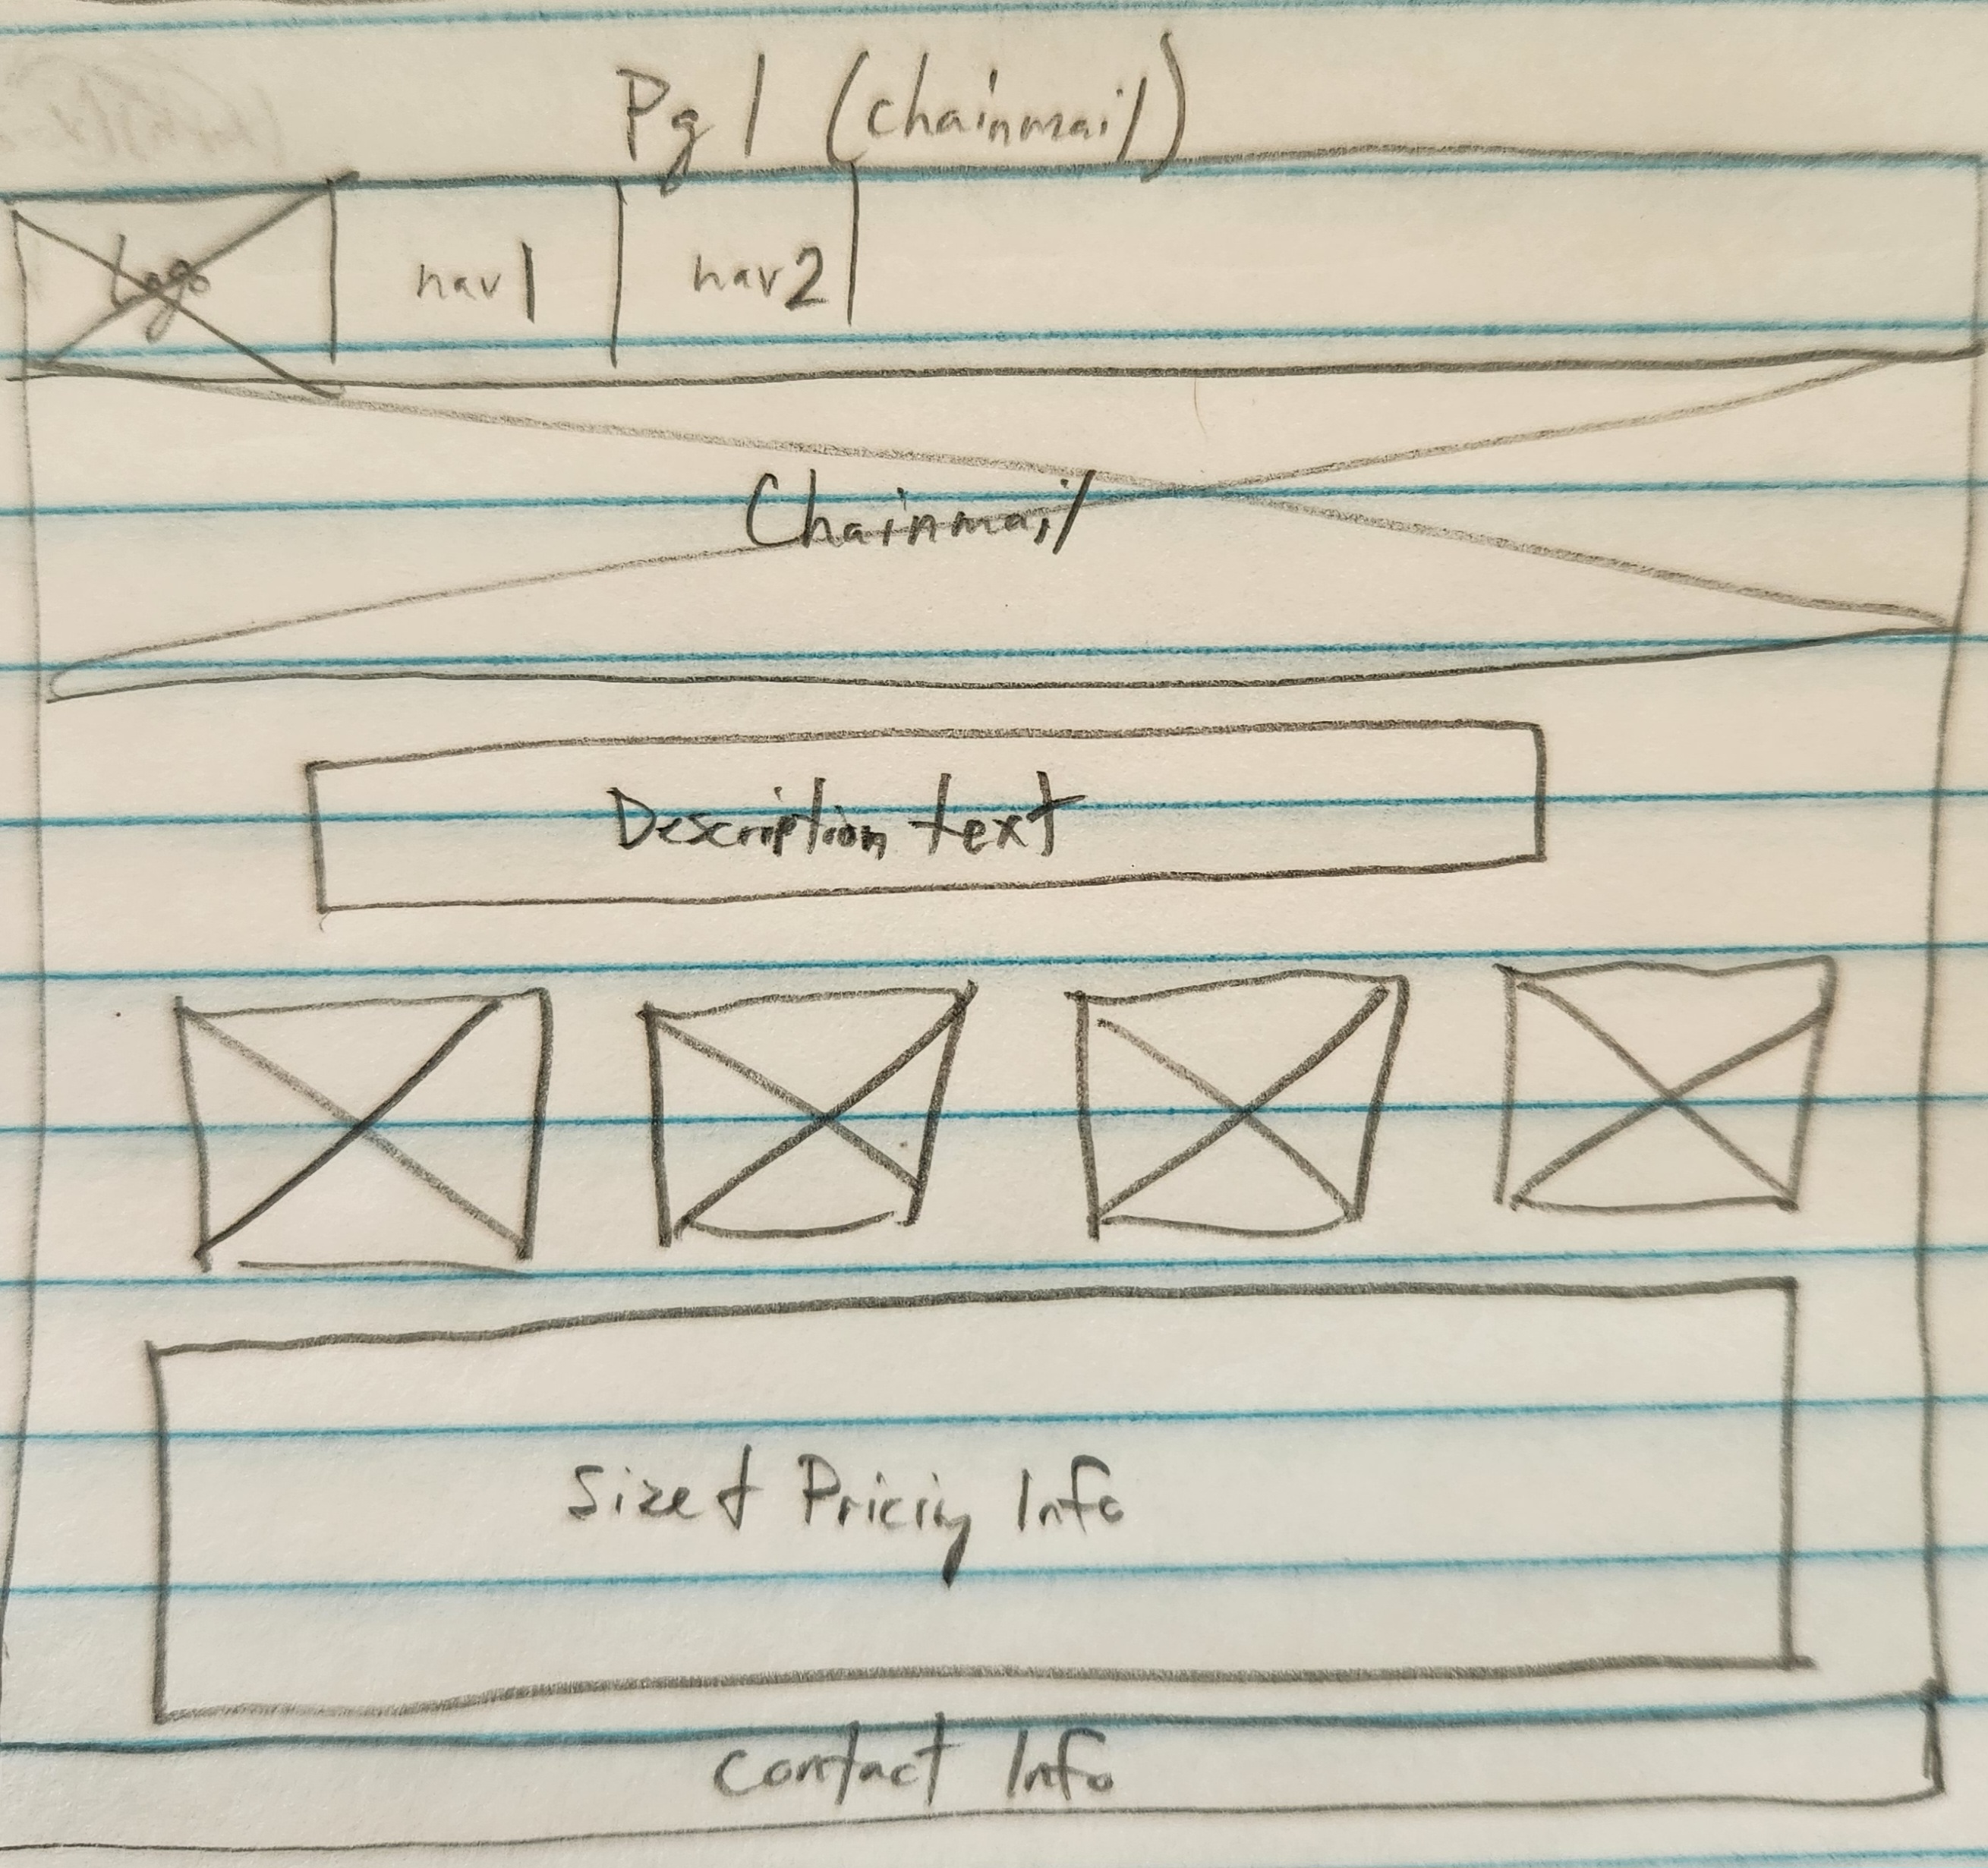 Pg 1 (chainmail)
Logo nav1 nav2
Chainmail
Description text
Size & Pricing Info
Contact Info